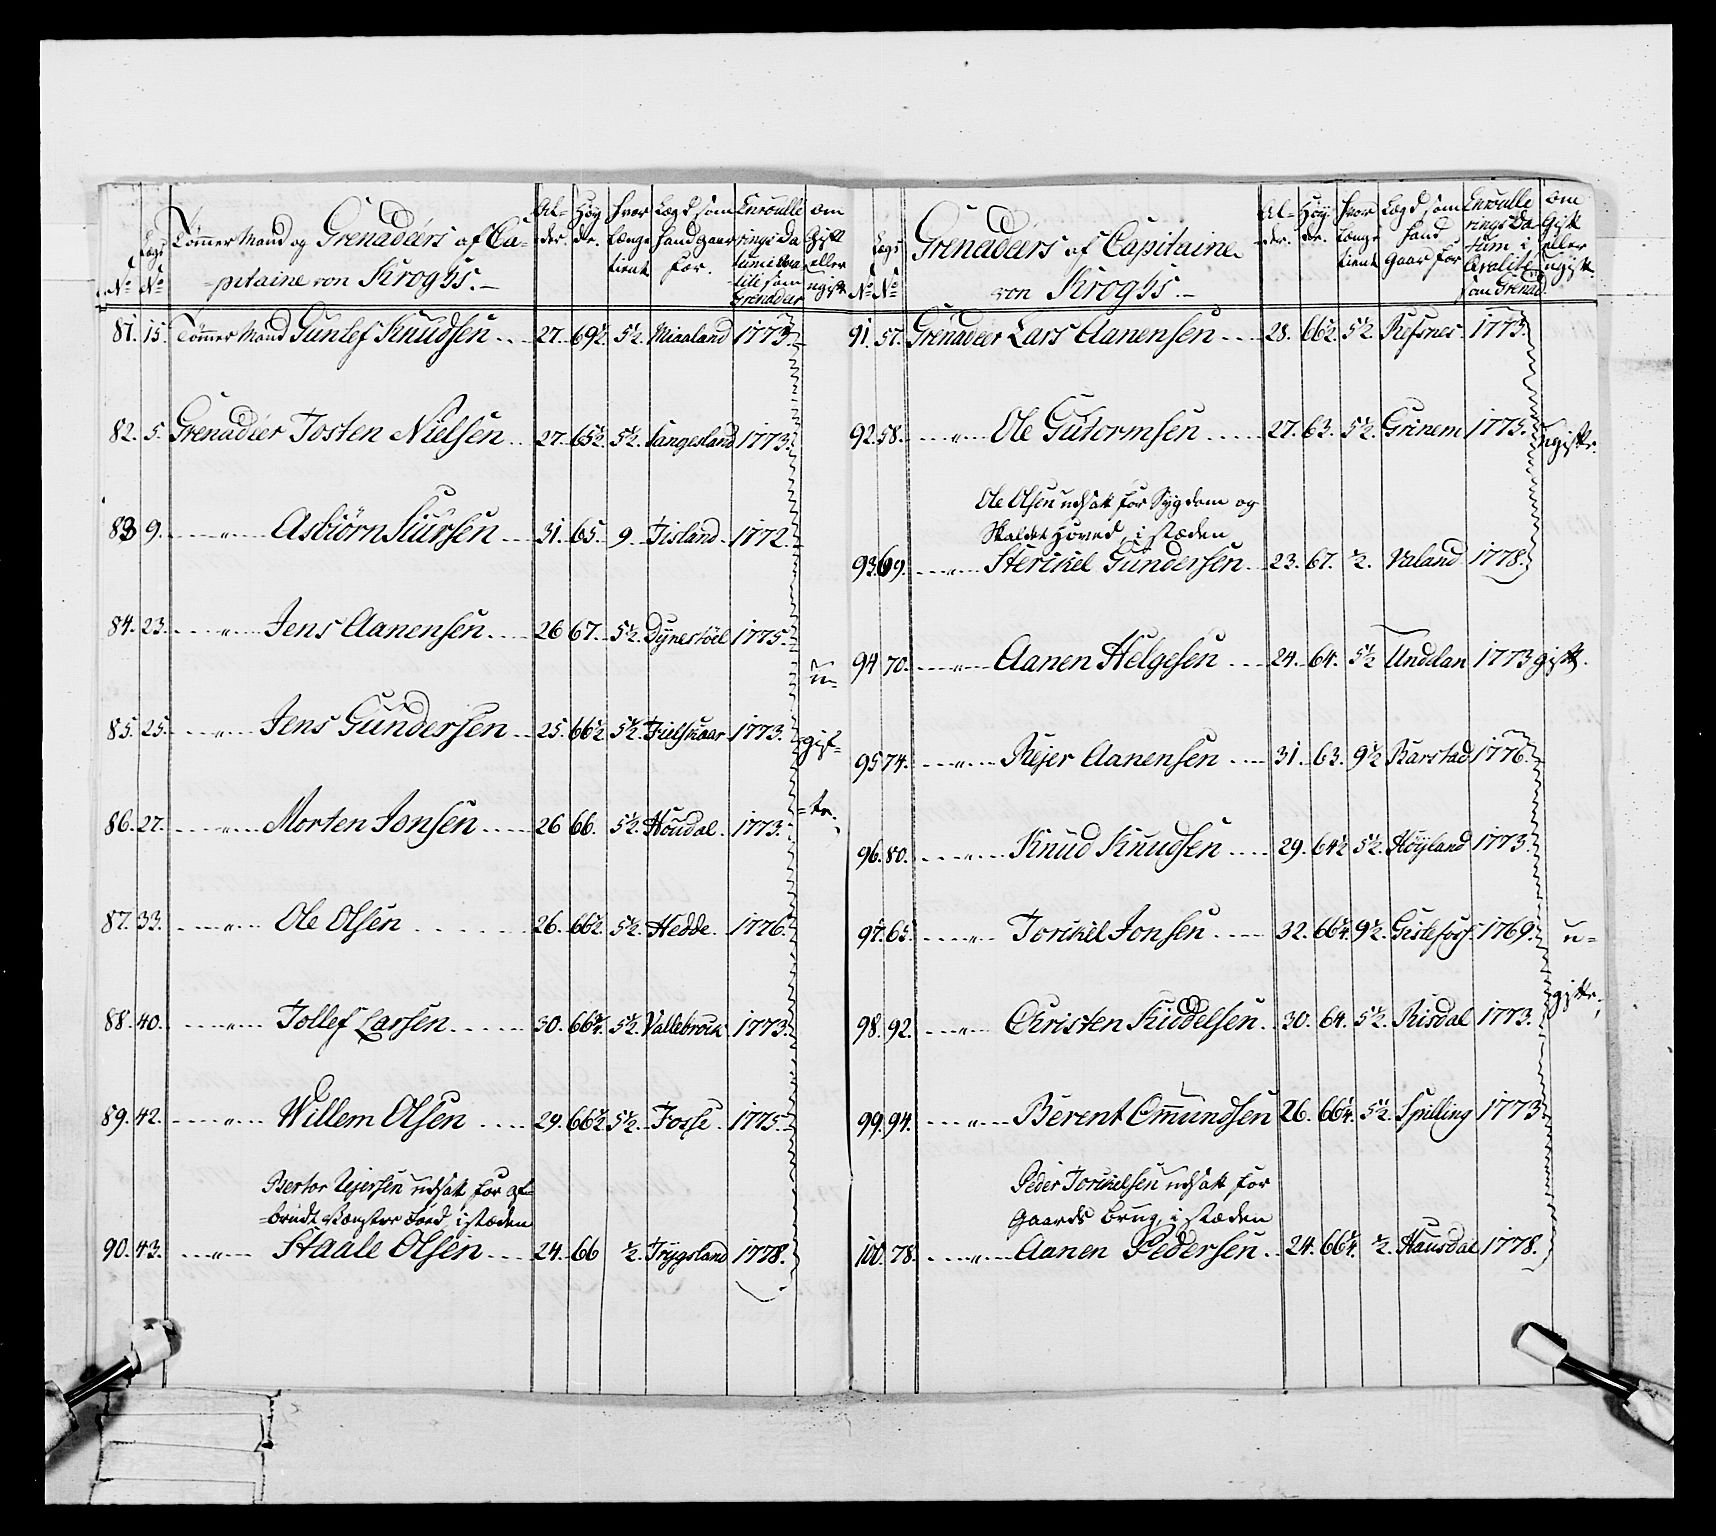 No
Lægs No
Tømmer Mand og Grenadeers af Ca-
pitaine von Kroghs.
Al-
der.
Høy
de.
hvor
længe
tient
Lægd som
hand gaar
for.
Enroulle
rings Da
tum
som
Grenadeer
om
Gift
eller
ugift
81. 15. Tømmer Mand Gunlef Knudsen 27. 69½ 5½. Miaaland 1773.
82. 5. Grenadeer Josten Nielsen 27. 65½ 5½. Langesland 1773.
83 9. " Asbiørn Siursen 31. 65. 9 Tisland 1772.
84. 23. " Jens Aanensen 26 67. 5½. Dynestøel 1775.
85. 25. " Jens Gundersen 25. 66½ 5½. Fielskaar 1773.
86. 27. " Morten Jonsen 26 66. 5½. Houdal. 1773.
87. 33. " Ole Olsen 26. 66½ 5½. Hedde. 1776.
88. 40. " Tollef Larsen 30. 66¼. 5½. Vallebroik 1773.
89. 42. " Willem Olsen 29. 66½ 5½. Fosse 1775.
Bertor Rejersen udsatt for af-
=brudt venster Laar, i stæden
90. 43. " Staale Olsen 24. 66 ½. Trygsland 1778.
u=
=gif=
=te.
No
Lægs No
Grenadeers af Capitaine
von Kroghs.
Al-
der.
Høy
de.
hvor
længe
tient
Lægd som
hand
gaar for
Enroulle
rings Da
tum i
som Grenad.
om
Gift
eller
ugift.
91. 57. Grenadeer Lars Aanensen 28. 66½. 5½. Refsnes 1773.
92. 58. " Ole Gutormsen 27. 63. 5½. Grinem 1773. ugifte.
Ole Olsen udsatt for Sygdom og
Skaldet Hoved, i stæden
93. 69. " Sterckel Gundersen 23. 67. ½. Valand 1778.
94 70. " Aanen Helgesen 24. 64. 5½ Unddan 1773 gift.
95 74. " Rejer Aanensen 31. 63. 9½ Barstad 1776.
96. 80. " Knud Knudsen 29. 64½ 5½. Høyland 1773.
97. 65. " Torckel Jonsen 32. 66¼. 9½. Gislefoss 1769.
98. 92. " Christen Kiddelsen 30. 64. 5½. Risdal 1773.
99. 94. " Berent Omundsen 26. 66¼. 5½. Spilling 1773
Peder Torckelsen udsatt for
Gaards brug, i stæden
100. 78. " Aanen Pedersen 24. 66¼. ½. Hausdal 1778.
u=
gifte.